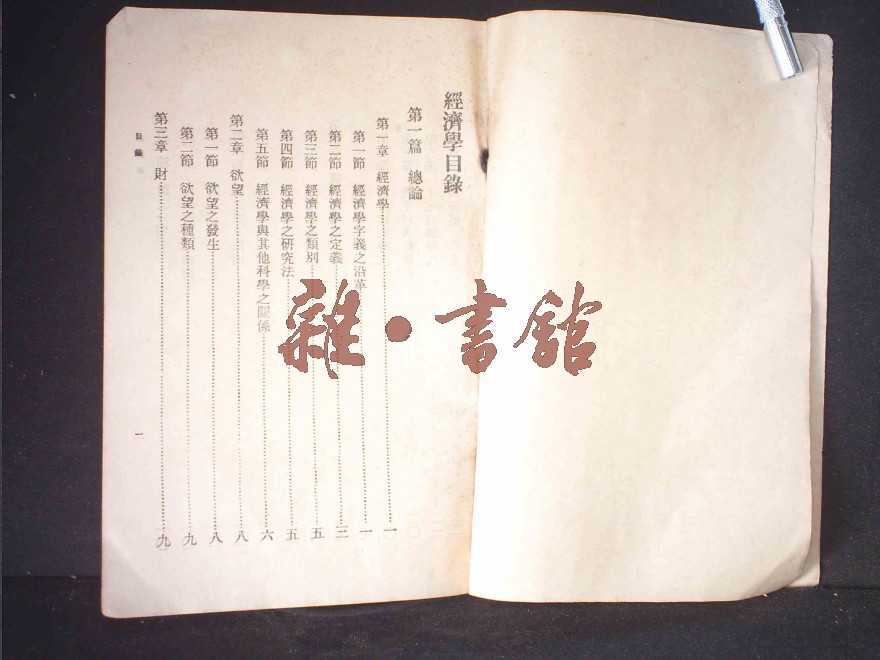 經濟學目錄
第一篇 總論
第一章 經濟學 一
第一節 經濟學字義之沿革 一
第二節 經濟學之定義 三
第三節 經濟學之類別 五
第四節 經濟學之研究法 五
第五節 經濟學與其他科學之關係 六
第二章 欲望 八
第一節 欲望之發生 八
第二節 欲望之種類 九
第三章 財 九
目錄
一
雜·書館